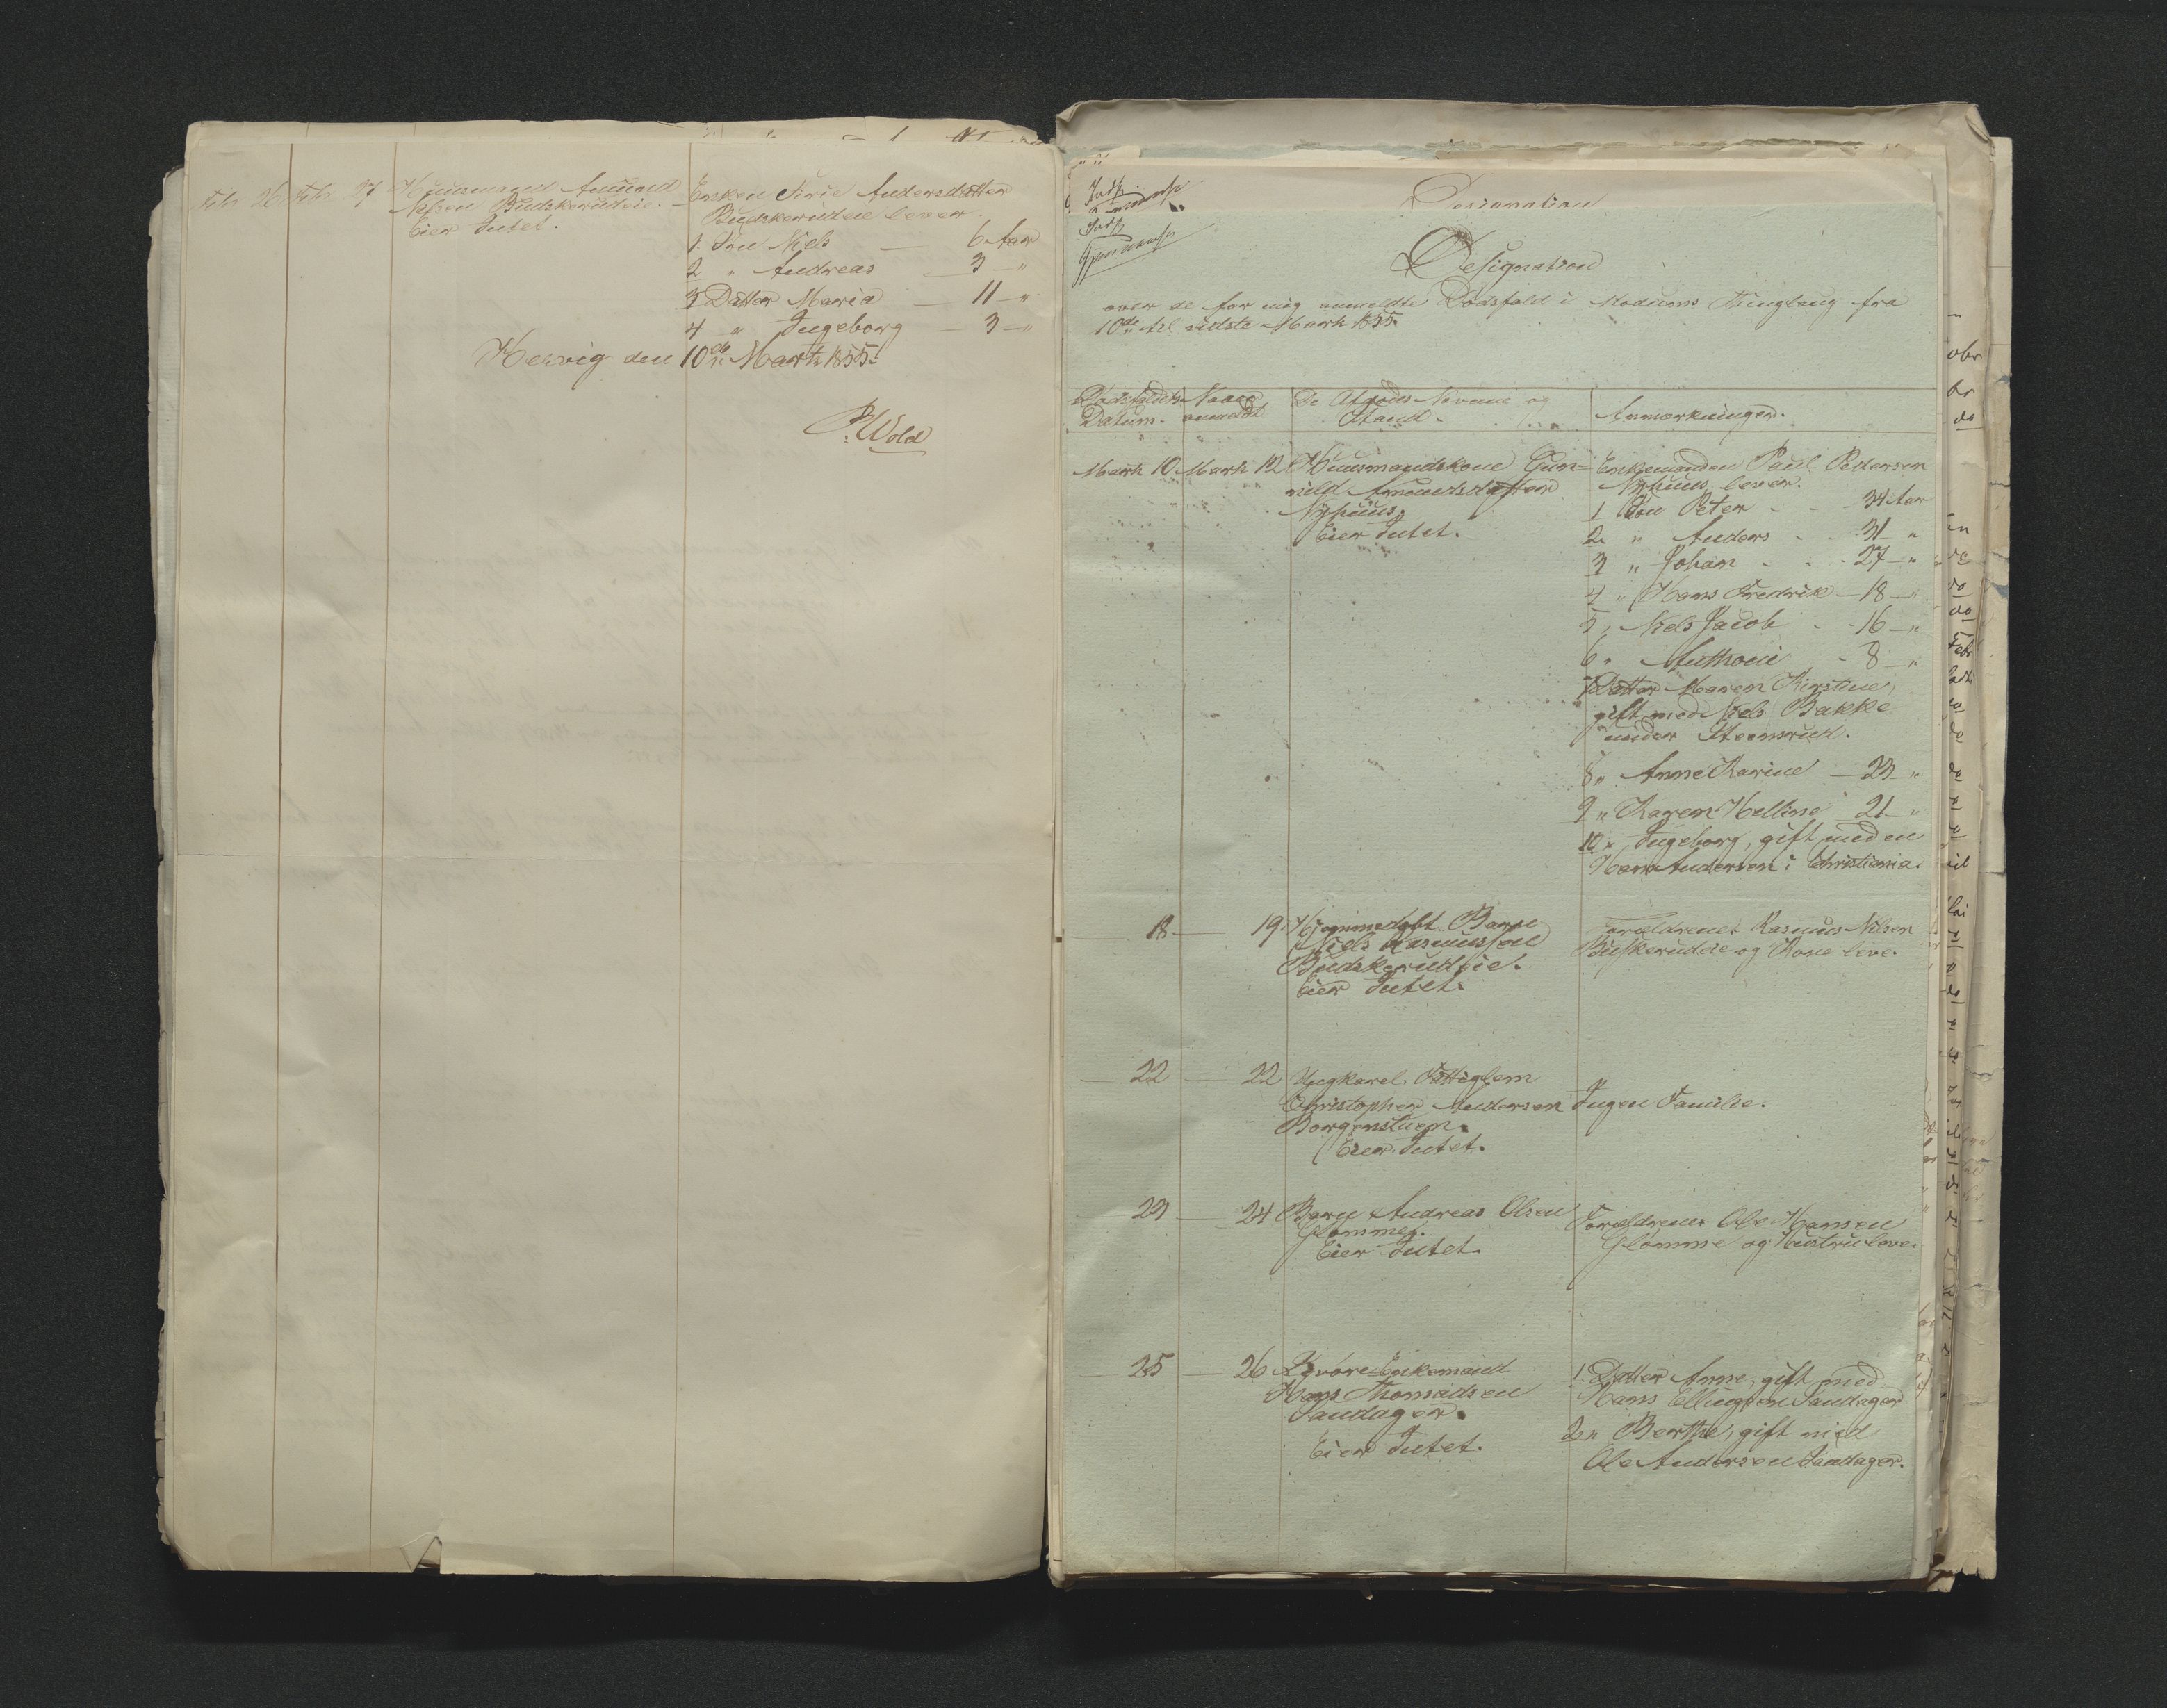 Febr 26 Febr 27 Huusmand Amund
Nilsen Budskerudeie.
Eier Intet.
Enken Kirie Andersdatter
Budskerudeie lever.
1. Søn Niels — 6 Aar
2 " Andreas — 3 — "
3 Datter Maria — 11 — "
4 " Ingeborg — 3 — "
Hervig den 10de Marts 1855.
P. Wold
Designation
Designation
over de for mig anmeldte Dødsfald i Modums Thinglaug fra
10de til sidste Marts 1855.
Dødsfaldets Datum.
Naar anmeldt
De Afdødes Navne og
Stand.
Anmærkninger.
Marts 10. Marts 12 Huusmandskone Gun-
nild Amundsdatter
Nÿhuus.
Eier Intet.
Enkemanden Paul Pedersen
Nÿhuus lever.
1 Søn Peter - - 34 Aar
2 " Anders - - 31 "
3 " Johan - - 27 — "
4 " Hans Fredrik — 18 — "
5 " Niels Jacob - - 16 — "
6 " Anthoni - 8 — "
7 Datter Maren Kirstine,
gift med Niels Bakke
under Steensrud.
8 " Anne Karine — 23 "
9 " Karen Helline 21 — "
10 " Ingeborg, gift med en
Hans Andersen i Christiania.
— 18 — 19 Hjemmedøbt Barn
Niels Rasmussen
Budskerudeie.
Eier Intet.
Forældrene Rasmus Nilsen
Buskerudeie og Kone leve.
— 22 — 22 Ungkarl Fattiglem
Christopher Andersen
Borgerstuen.
Eier Intet.
Ingen Familie.
— 23 — 24 Barn Andreas Olsen
Glomme.
Eier Intet.
Forældrene Ole Hansen
Glomme og Hustru leve.
— 25 — 26 Enkemand
Hans Thomadsen
Sandager.
Eier Intet.
1. Datter Anne, gift med
Hans Ellingsen Sandager
2 " Berthe, gift med
Ole Andersen Sandager.